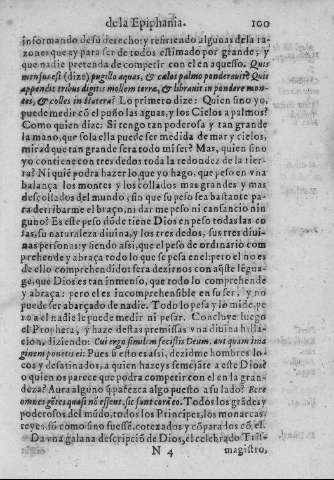 de la Epiphania. 100
informando de su derecho; y refiriendo algunas de la ra-
zones que ay para ser de todos estimado por grande; y
que nadie pretenda de competir con el en aquesso. Quis
mensus est (dize) pugillo aquas, & cælos palmo ponderauit? Quis
appendit tribus digitis mollem terræ, & librauit in pondere mon-
tes, & colles in statera? Lo primero dize: Quien sino yo,
puede medir cõ el puño las aguas, y los Cielos a palmos?
Como quien dize: Si tengo tan poderosa y tan grande
la mano, que sola ella puede ser medida de mar y cielos,
mirad que tan grande sera todo mi ser? Mas, quien sino
yo contiene con tres dedos toda la redondez de la tier-
ra? Ni quié podra hazer lo que yo hago, que peso en vna
balança los montes y los collados mas grandes y mas
descollados del mundo, sin que su peso sea bastante pa-
ra derribarme el braço, ni darme peso ni cansancio nin
guno? Es este peso dõde tiene Dios en peso todas las co
sas, su naturaleza diuina, y los tres dedos, sus tres diui-
nas personas; y siendo assi, que el peso de ordinario com
prehende y abraça todo lo que se pesa en el: pero el no es
de ello comprehendido: sera dezirnos con aq̃ste lẽgua-
ge, que Dios es tan inmenso, que todo lo comprehende
y abraça: pero el es incomprehensible en su ser; y no
puede ser abarçado de nadie. Todo lo pesa y lo mide, pe
ro a el nadie le puede medir ni pesar. Concluye luego
el Propheta, y haze destas premissas vna diuina hilla-
cion, diziendo: Cui ergo similem fecistis Deum, aut quam ima
ginem ponetis ei: Pues si esto es assi, dezidme hombres lo-
cos y desatinados, a quien hazeys semejãte a este Dios
o quien os parece que podra competir con el en la gran-
deza? Aura alguno q̃ parezca algo puesto a su lado? Ecce
omnes gẽtes quasi nõ essent, sic sunt corã eo. Todos los grãdes y
poderosos del mũdo, todos los Principes, los monarcas
reyes, sõ como sino fuessẽ, cotezados y cõpara los cõ el.
Da vna galana descripciõ de Dios, el celebrado Tris-
N 4 magistro,